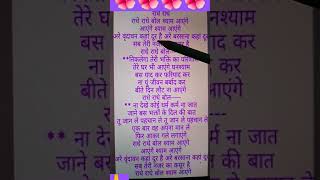 राधे राधे
राधे राधे बोल श्याम आएंगे
आएंगे श्याम आएंगे
अरे वृंदावन कहा दूर है अरे बरसाना कहा दूर
सब तेरी नजर का कसूर है
राधे राधे बोल
**निकलेगा तेरी भक्ति का परिणाम
तेरे घर भी आएंगे घनश्याम
बस याद कर फरियाद कर
ना यूं जीवन बर्बाद कर
बीते दिन लौट ना आएंगे
राधे राधे बोल-----
** ना देखे कोई धर्म कर्म ना जात
जाने बस भक्तों के दिल की बात
तू जान ले पहचान ले तू जान ले पहचान ले
एक बार वह अपना मान ले
फिर आकर गले लगाएंगे
राधे राधे बोल श्याम आएंगे
आएंगे आएंगे
अरे वृंदावन कहां दूर है अरे बरसाना कहां दूर
सब तेरी नजर का कसूर है
राधे राधे बोल श्याम आएंगे